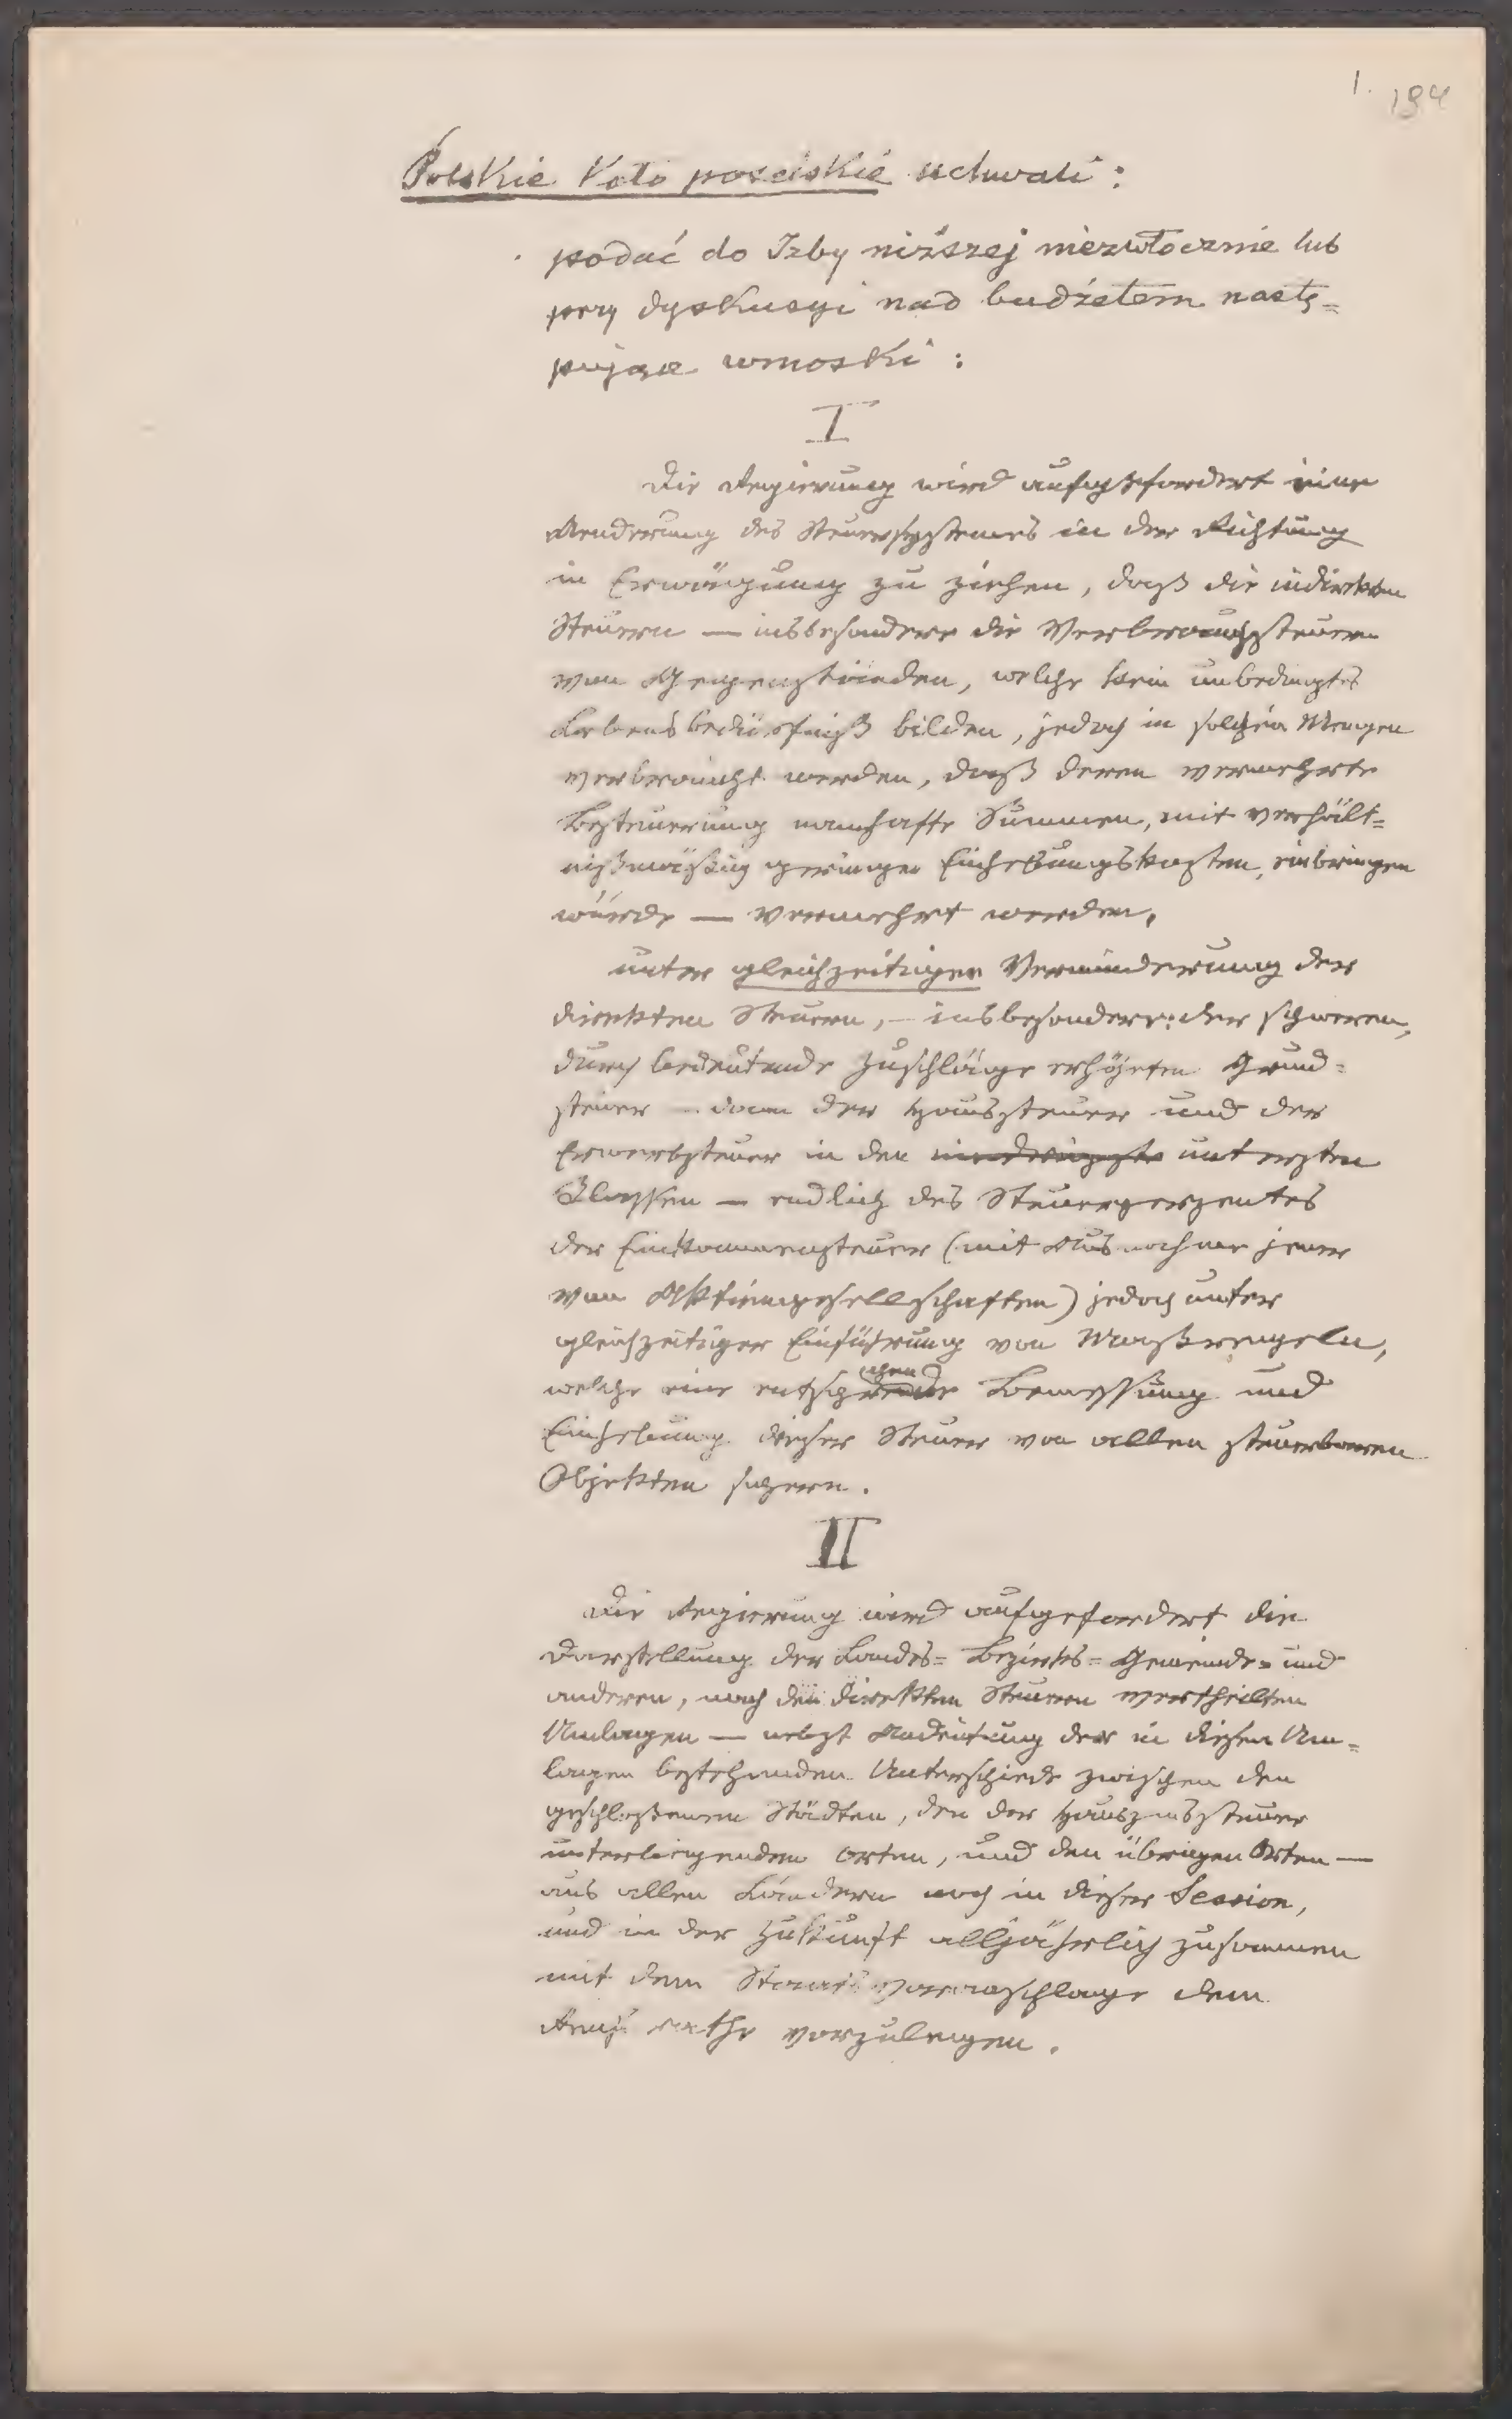 1. 194
Polskie Koło poselskie uchwali:
podać do Izby niższej niezwłocznie lub
przy dyskusyi nad budżetem nastę=
pujące wnioski:
I
Die Regierung wird aufgefordert eine
Aenderung des Steuersystemes in der Richtung
in Erwägung zu ziehen, daß die indirekten
Steuern — insbesondere die Verbrauchssteuern
von Gegenständen, welche kein unbedingtes
Lebensbedürfniß bilden, jedoch in solchen Mengen
verbraucht werden, daß deren vermehrte
Besteuerung namhafte Summen, mit verhält=
nißmäßig geringen Einhebungskosten, einbringen
würde — vermehrt werden,
unter gleichzeitiger Verminderung der
direkten Steuern, — insbesondere: der schweren,
durch bedeutende Zuschläge erhöhten Grund=
steuer — dann der Haussteuer und der
Erwerbsteuer in den untersten
Klassen — endlich des Steuerperzentes
der Einkommensteuer (mit Ausnahme jener
von Aktiengesellschaften) jedoch unter
gleichzeitiger Einführung von Maßregeln,
welche eine Bemessung und
Einhebung dieser Steuer von allen steuerbaren
Objekten sichern.
II
Die Regierung wird aufgefordert die
Darstellung der Landes= Bezirks= Gemeinde= und
anderen, nach den direkten Steuern vertheilten
Umlagen — nebst Andeutung der in diesen Um=
lagen bestehenden Unterschiede zwischen den
geschloßenen Städten, den der Hauszinssteuer
unterliegenden Orten, und den übrigen Orten —
aus allen Ländern noch in dieser Session,
und in der Zukunft alljährlich zusammen
mit dem Staatsvoranschlage dem
Reichsrathe vorzulegen.